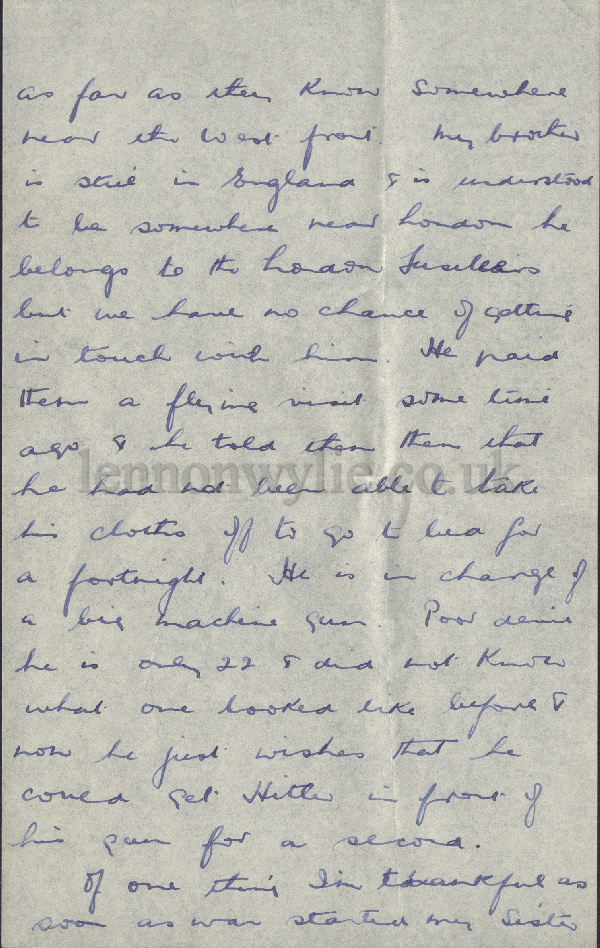 as far as they know somewhere
near the West front. My brother
is still in England & is understood
to be somewhere near London he
belongs to the London Fusiliers
but we have no chance of getting
in touch with him. He paid
them a flying visit some time
ago & he told them then that
lennonwylie.co.uk
he had not been able to take
his cloths off to go to bed for
a fortnight. He is in charge of
a big machine gun. Poor
he is only 22 & did not know
what one looked like before &
now he just wishes that he
could get Hitler in front of
his gun for a second.
Of one thing I'm thankful as
soon as war started my sister